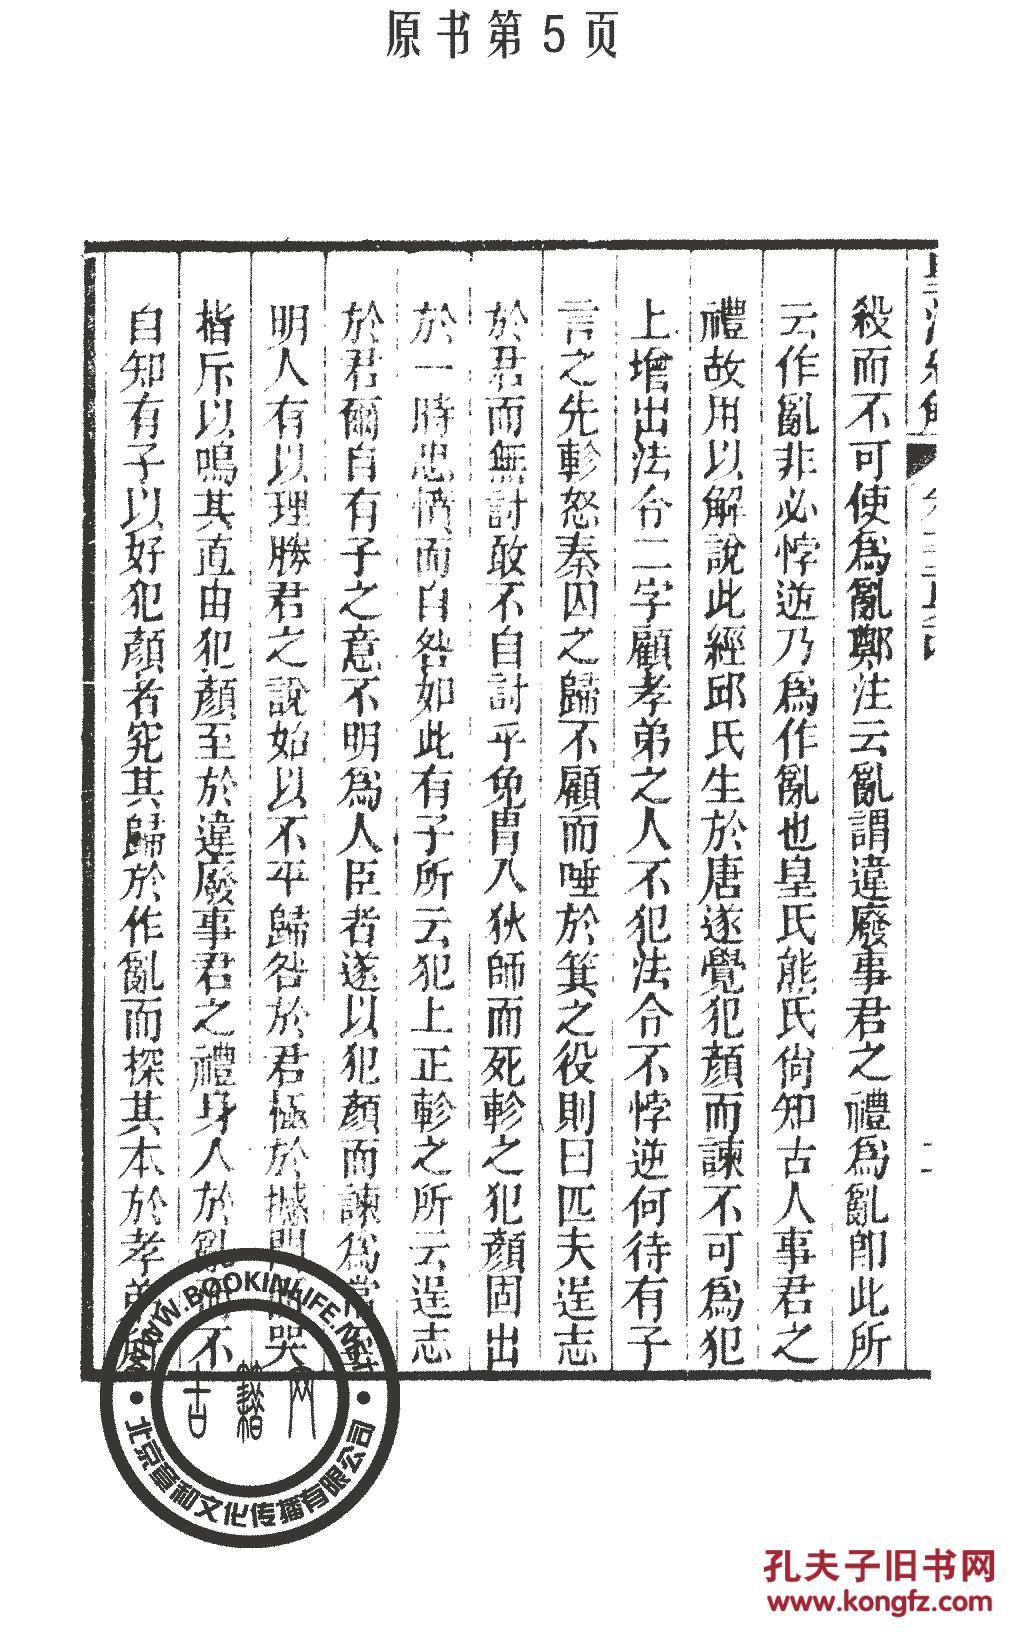 原书第5页
殺而不可使為亂鄭注云亂謂違廢事君之禮為亂即此所
云作亂非必悖逆乃為作亂也皇氏熊氏尙知古人事君之
禮故用以解說此經邱氏生於唐遂覺犯顏而諫不可為犯
上增出法令二字顧孝弟之人不犯法令不悖逆何待有子
言之先軫怒秦囚之歸不顧而唾於箕之役則曰匹夫逞志
於君而無討敢不自討乎免冑入狄師而死軫之犯顏固出
於一時忠憤而自咎如此有子所云犯上正軫之所云逞志
於君爾自有子之意不明為人臣者遂以犯顏而諫為當
明人有以理勝君之說始以不平歸咎於君極於撼門哭
指斥以鳴其直由犯顏至於違廢事君之禮身人於亂不
自知有子以好犯顏者究其歸於作亂而探其本於孝弟
WWW.BOOKINLIFE.NET
古籍网
北京章和文化传播有限公司
孔夫子旧书网
www.kongfz.com